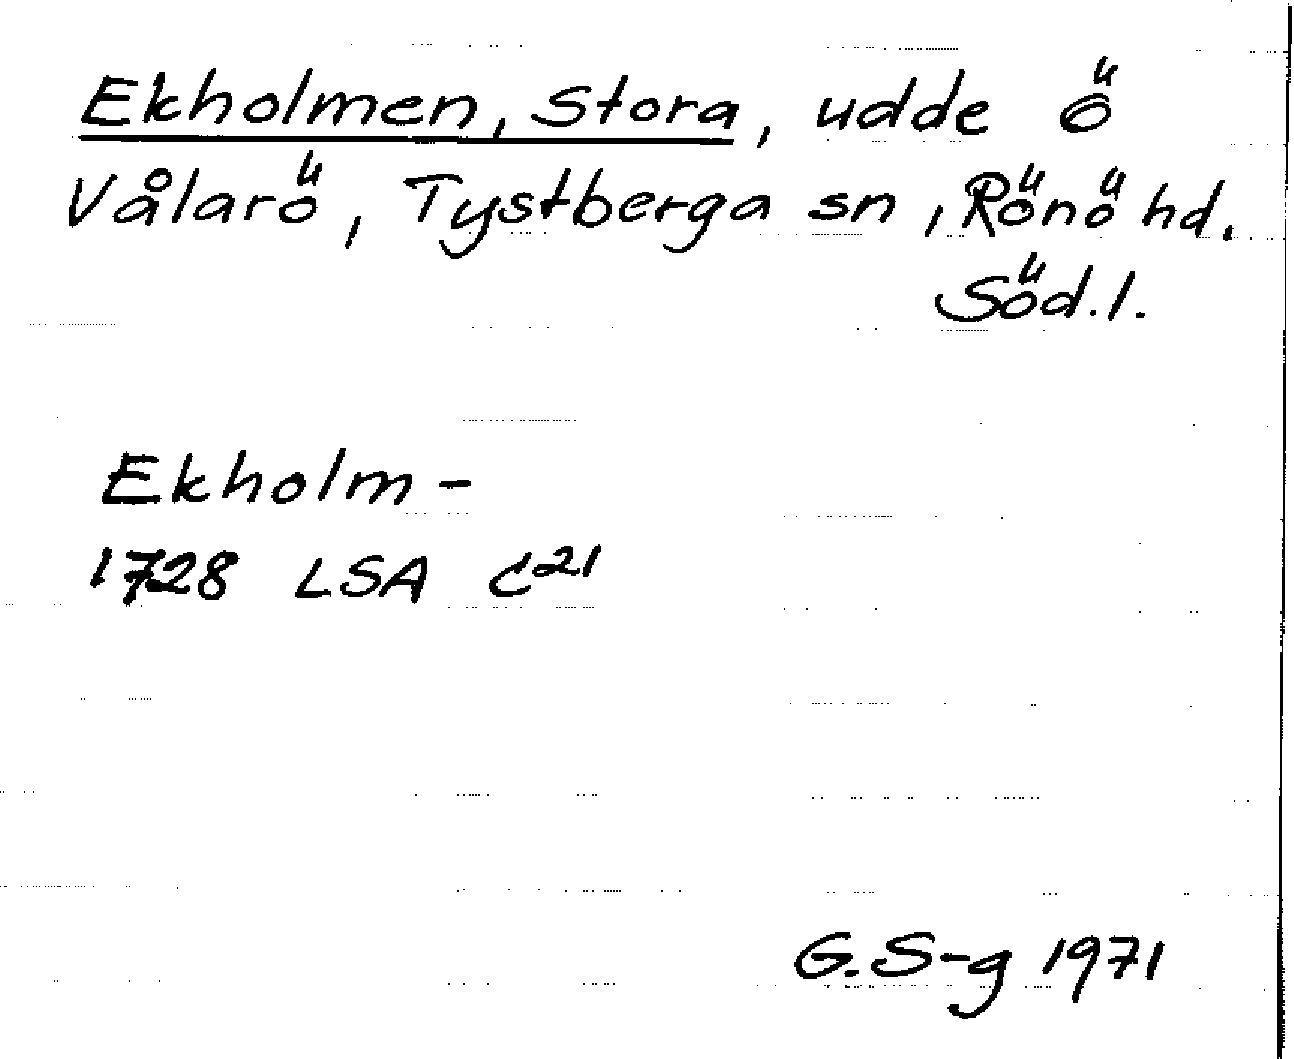 Ekholmen, Stora, udde ö
Vålarö, Tystberga sn, Rönö hd.
Söd.l.
Ekholm-
1728 LSA C²¹
G.S-g 1971